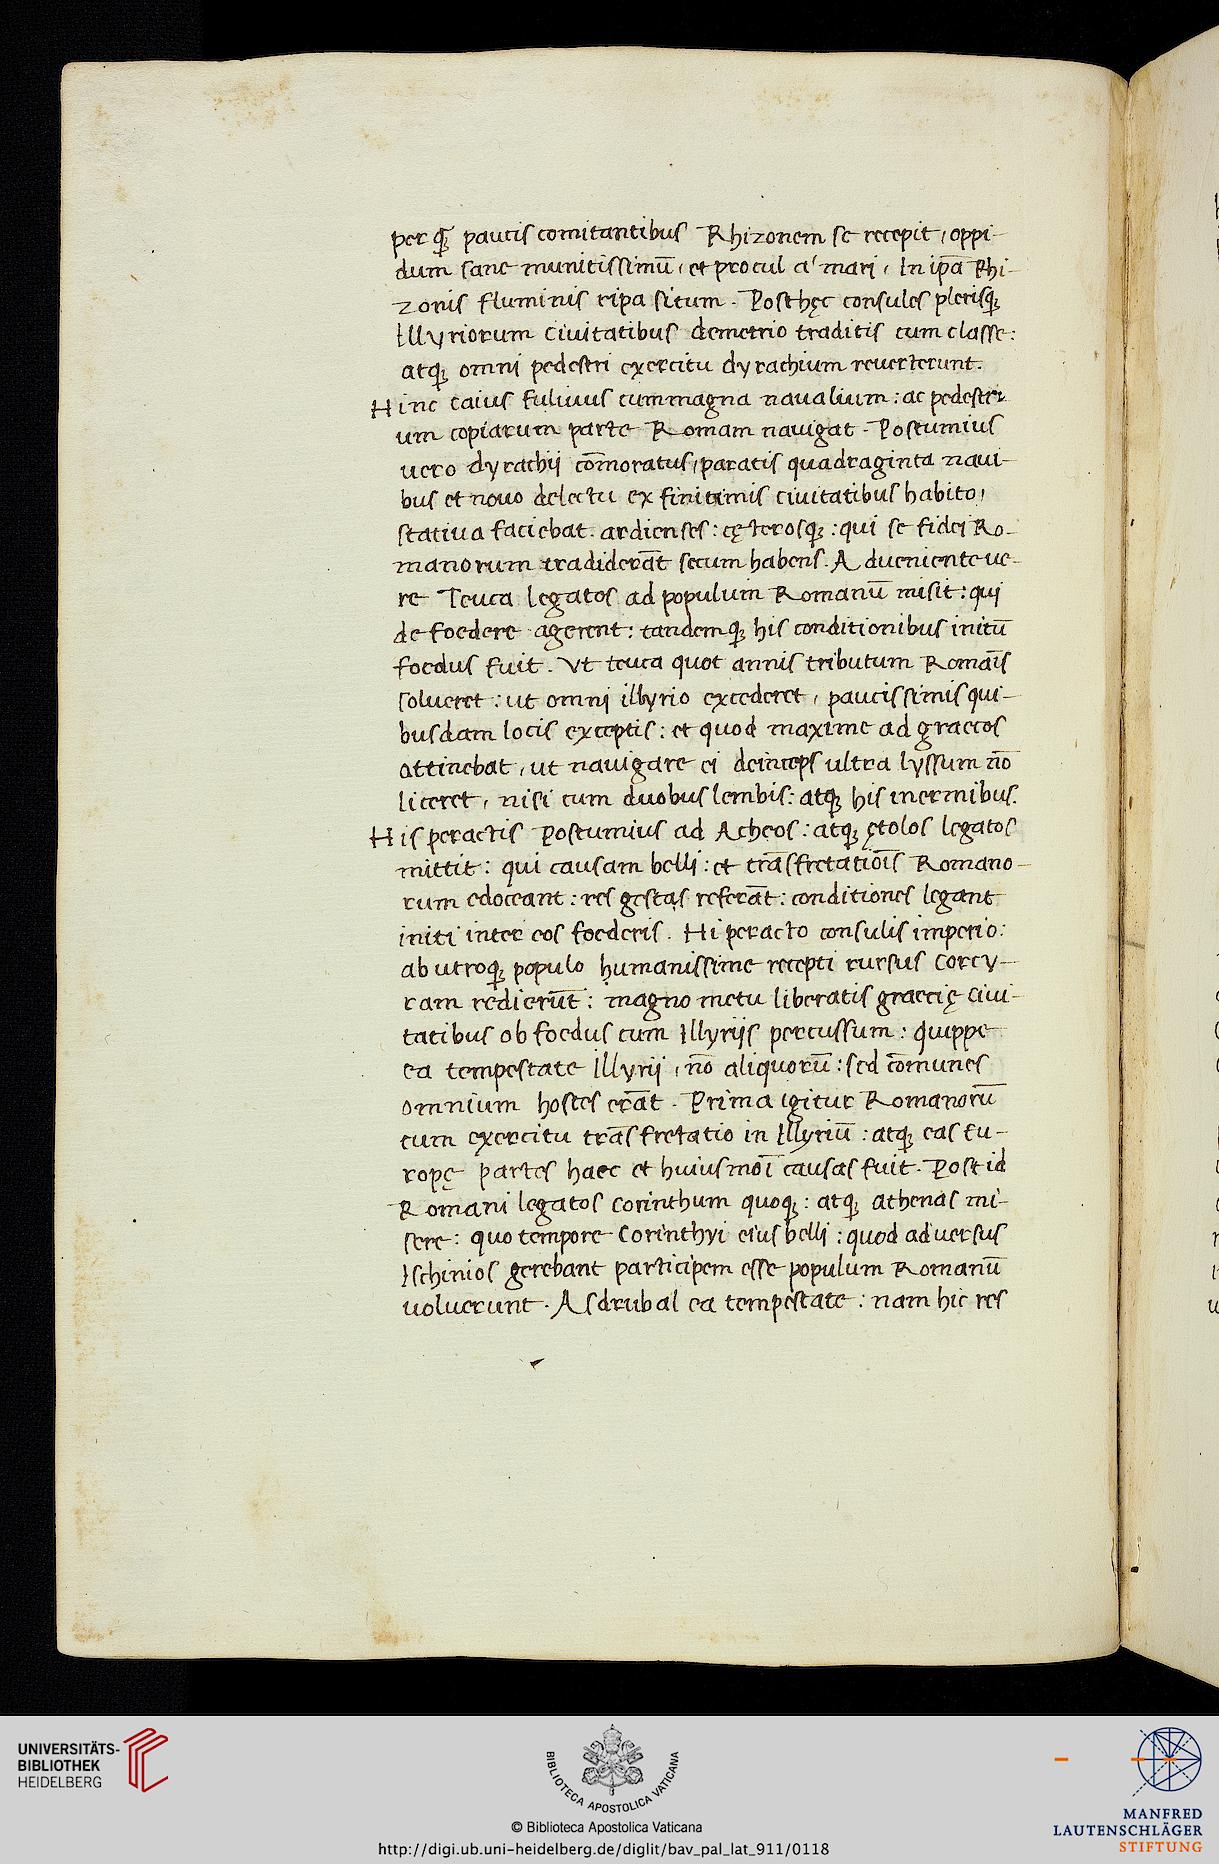 per qȝ paucis comitantibus Rhizonem se recepit, oppi-
dum sane munitissimū, et procul a' mari, In ipā Rhi-
zonis fluminis ripa situm. Posthęc consules plerisqȝ
Illyriorum Ciuitatibus demetrio traditis cum classe:
atqȝ omni pedestri exercitu dyrachium reuerterunt.
Hinc Caius fuluius cum magna naualium: ac pedestri
um copiarum parte Romam nauigat. Postumius
uero dyrachii cōmoratus, paratis quadraginta naui-
bus et nouo delectu ex finitimis ciuitatibus habito,
statiua faciebat. ardienses: cęterosqȝ: qui se fidei Ro-
manorum tradiderāt secum habens. Adueniente ue-
re Teuca legatos ad populum Romanū misit: qui
de foedere agerent: tandemqȝ his conditionibus initū
foedus fuit. Vt teuca quot annis tributum Romāis
solueret: ut omni illyrio excederet, paucissimis qui-
busdam locis exceptis: et quod maxime ad graecos
attinebat, ut nauigare ei deinceps ultra lyssum nō
liceret, nisi cum duobus lembis: atqȝ his inermibus.
His peractis Postumius ad Acheos: atqȝ ętolos legatos
mittit: qui causam belli: et trāsfretatiōis Romano-
rum edoceant: res gestas referāt: conditiones legant
initi inter eos foederis. Hi peracto consulis imperio:
ab utroqȝ populo humanissime recepti rursus Corcy-
ram redierūt: magno metu liberatis graecię Ciui-
tatibus ob foedus cum Illyriis percussum: quippe
ea tempestate Illyrii, nō aliquorū: sed cōmunes
omnium hostes erāt. Prima igitur Romanorū
cum exercitu trāsfretatio in Illyriū: atqȝ eas Eu-
ropę partes haec et huiusmōi causas fuit. Post id
Romani legatos Corinthum quoqȝ: atqȝ athenas mi-
sere: quo tempore Corinthyi eius belli: quod aduersus
Ischinios gerebant participem esse populum Romanū
uoluerunt. Asdrubal ea tempestate: nam hic res
UNIVERSITÄTS-
BIBLIOTHEK
HEIDELBERG
BIBLIOTECA APOSTOLICA VATICANA
© Biblioteca Apostolica Vaticana
http://digi.ub.uni-heidelberg.de/diglit/bav_pal_lat_911/0118
MANFRED
LAUTENSCHLÄGER
STIFTUNG